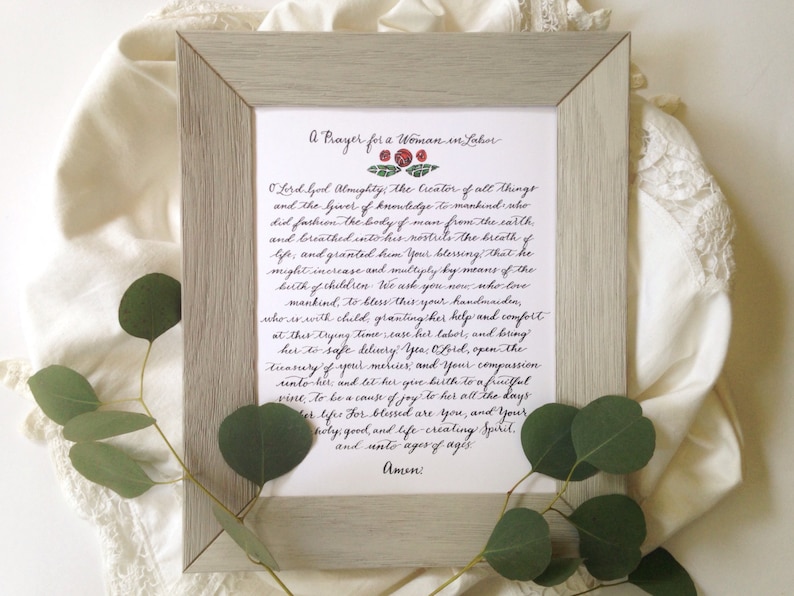 A Prayer for a Woman in Labor
O Lord God Almighty, the Creator of all things
and the Giver of knowledge to mankind; who
did fashion the body of man from the earth,
and breathed into his nostrils the breath of
life, and granted him Your blessing, that he
might increase and multiply by means of the
birth of children: We ask you now, who love
mankind, to bless this your handmaiden,
who is with child, granting her help and comfort
at this trying time; ease her labor, and bring
her to safe delivery. Yea, O Lord, open the
treasury of your mercies, and Your compassion
unto her, and let her give birth to a fruitful
vine, to be a cause of joy to her all the days
her life. For blessed are You, and Your
holy, good, and life-creating Spirit,
and unto ages of ages.
Amen.